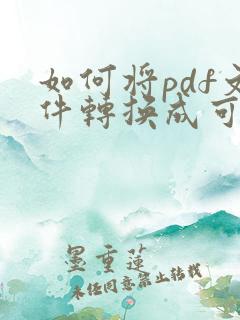 如何将pdf文
件轉換成可
墨重蓮
未经同意禁止转载